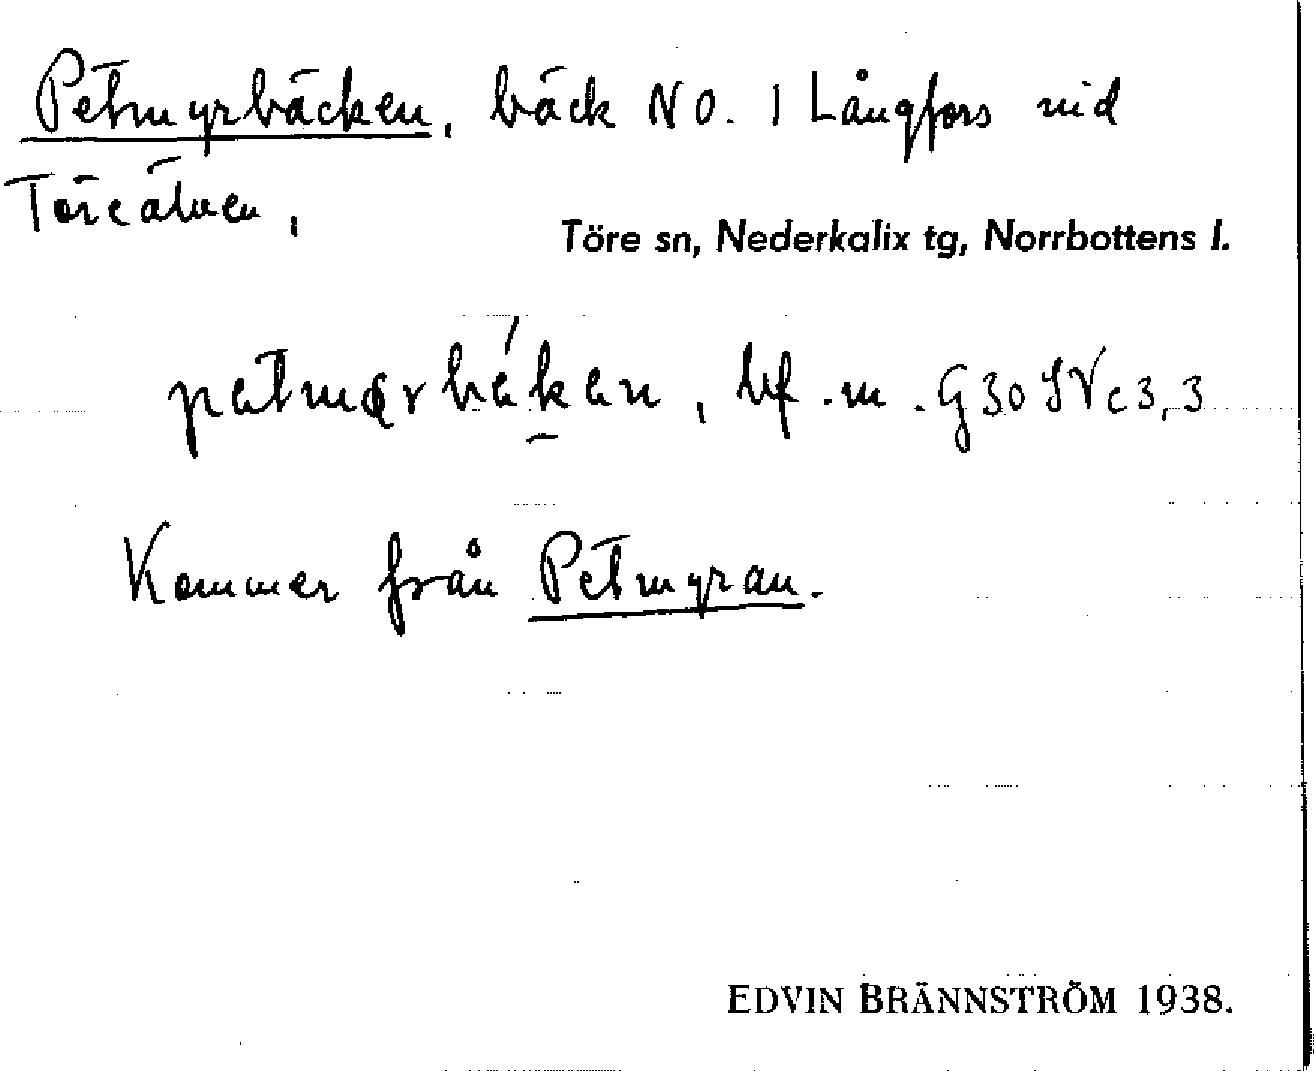 Petmyrbäcken, bäck NO. 1 Långfors vid
Töreälven,
Töre sn, Nederkalix tg, Norrbottens l.
bf. m. G30 SV c 3,3
Kommer från Petmyran.
EDVIN BRÄNNSTRÖM 1938.